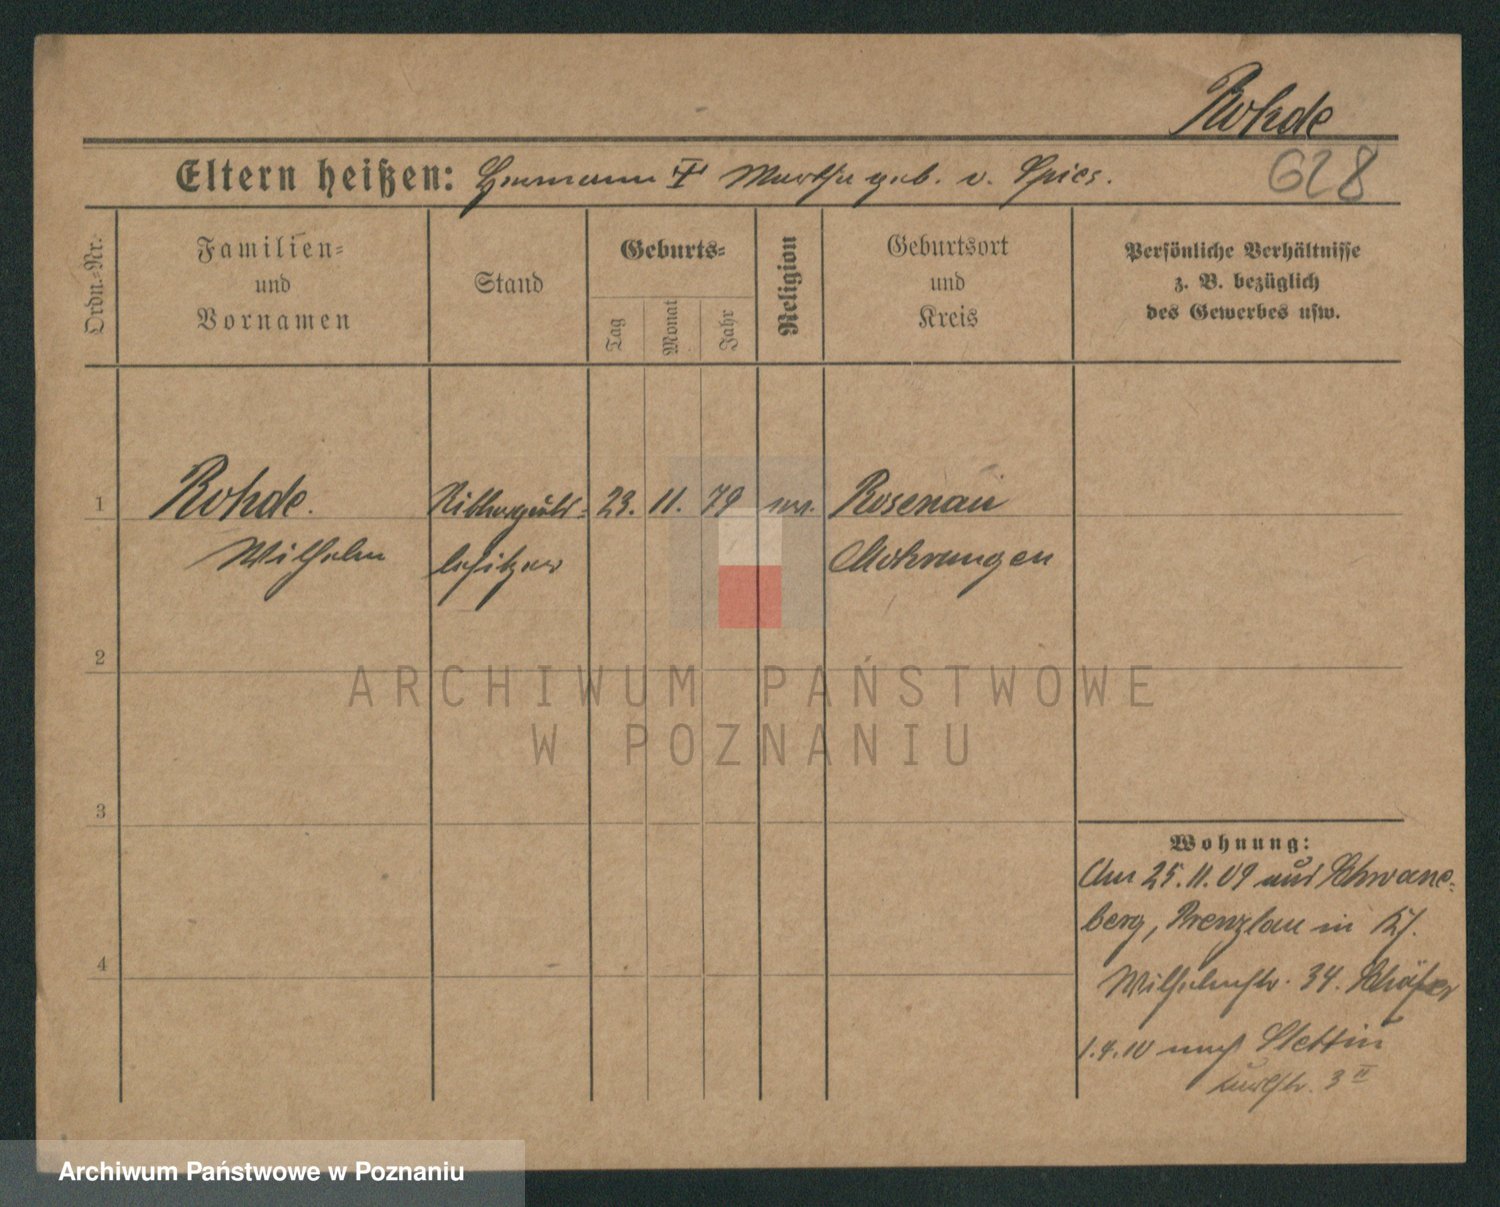 Rohde
628
Eltern heißen: Hermann † Martha geb. v. Spies.
Ordn.-Nr.
Familien-
und
Vornamen
Stand
Geburts-
Tag
Monat
Jahr
Religion
Geburtsort
und
Kreis
Persönliche Verhältnisse
z. B. bezüglich
des Gewerbes usw.
1
Rohde.
Wilhelm
Ritterguts-
besitzer
23. 11. 79
ev.
Rosenau
Mohrungen
2
ARCHIWUM PAŃSTWOWE
W POZNANIU
3
4
Wohnung:
Am 25.11.09 aus Schwane-
berg, Prenzlau in
Wilhelmstr. 34. Schäfer
1.4.10 nach Stettin
3 II
Archiwum Państwowe w Poznaniu